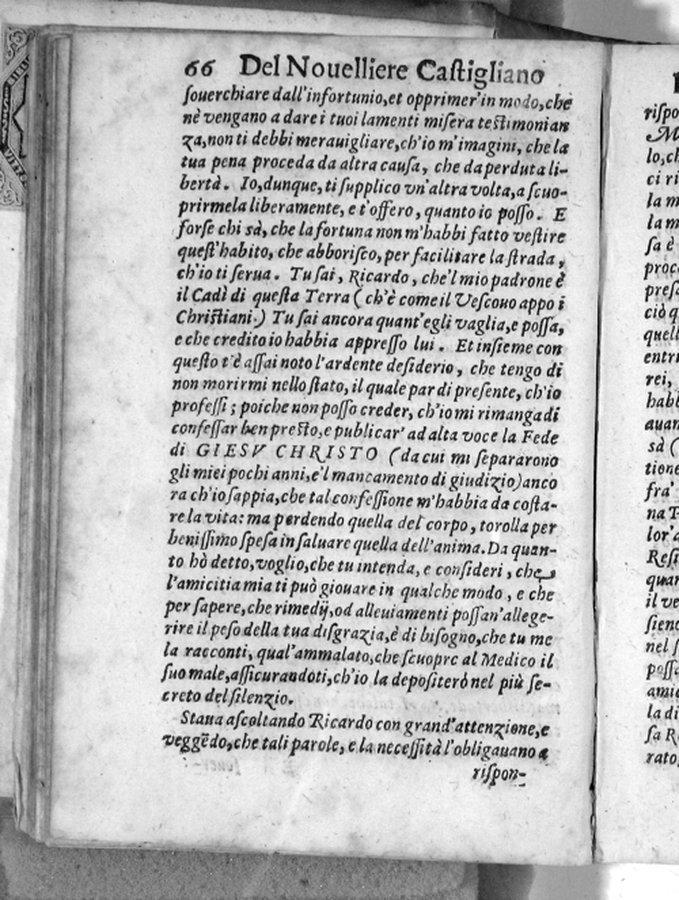 66 Del Nouelliere Castigliano
ſouerchiare dall'infortunio,et opprimer'in modo,che
nè vengano a dare i tuoi lamenti miſera teſtimonian
za,non ti debbi merauigliare,ch'io m'imagini, che la
tua pena proceda da altra cauſa, che da perduta li-
bertà. Io,dunque,ti ſupplico vn'altra volta,a ſcuo-
prirmela liberamente, e t'offero, quanto io poſſo. E
forſe chi sà, che la fortuna non m'habbi fatto veſtire
queſt'habito, che abboriſco, per facilitare la ſtrada,
ch'io ti ſerua. Tu ſai, Ricardo, che'l mio padrone è
il Cadì di queſta Terra (ch'è come il Veſcouo appo i
Chriſtiani.) Tu ſai ancora quant'egli vaglia,e poſſa,
e che credito io habbia appreſſo lui. Et inſieme con
queſto t'è aſſai noto l'ardente deſiderio, che tengo di
non morirmi nello ſtato, il quale par di preſente, ch'io
profeſſi; poiche non poſſo creder, ch'io mi rimanga di
confeſſar ben preſto,e publicar' ad alta voce la Fede
di GIESV CHRISTO (da cui mi ſepararono
gli miei pochi anni,e'l mancamento di giudizio)anco
ra ch'io ſappia,che tal confeſſione m'habbia da coſta-
re la vita: ma perdendo quella del corpo, torolla per
beniſſimo ſpeſa in ſaluare quella dell'anima.Da quan-
to hò detto,voglio,che tu intenda, e conſideri, che
l'amicitia mia ti può giouare in qualche modo, e che
per ſapere,che rimedij,od alleuiamenti poſſan'allege-
rire il peſo della tua diſgrazia,è di biſogno,che tu me
la racconti, qual'ammalato,che ſcuopre al Medico il
ſuo male,aſſicurandoti,ch'io la depoſiterò nel più ſe-
creto del ſilenzio.
Staua aſcoltando Ricardo con grand'attenzione,e
veggẽdo,che tali parole, e la neceſſità l'obligauano a
riſpon-
riſpo
lo,ch
ci ri
la m
la m
ſa è
proce
preſa
ciò q
quell
entr
rei,
habb
auan
sà (
tione
fra'
na
lor'a
Reſi
quan
il ve
ſien
nel ſ
poſſa
amic
la di
ſa R
rato